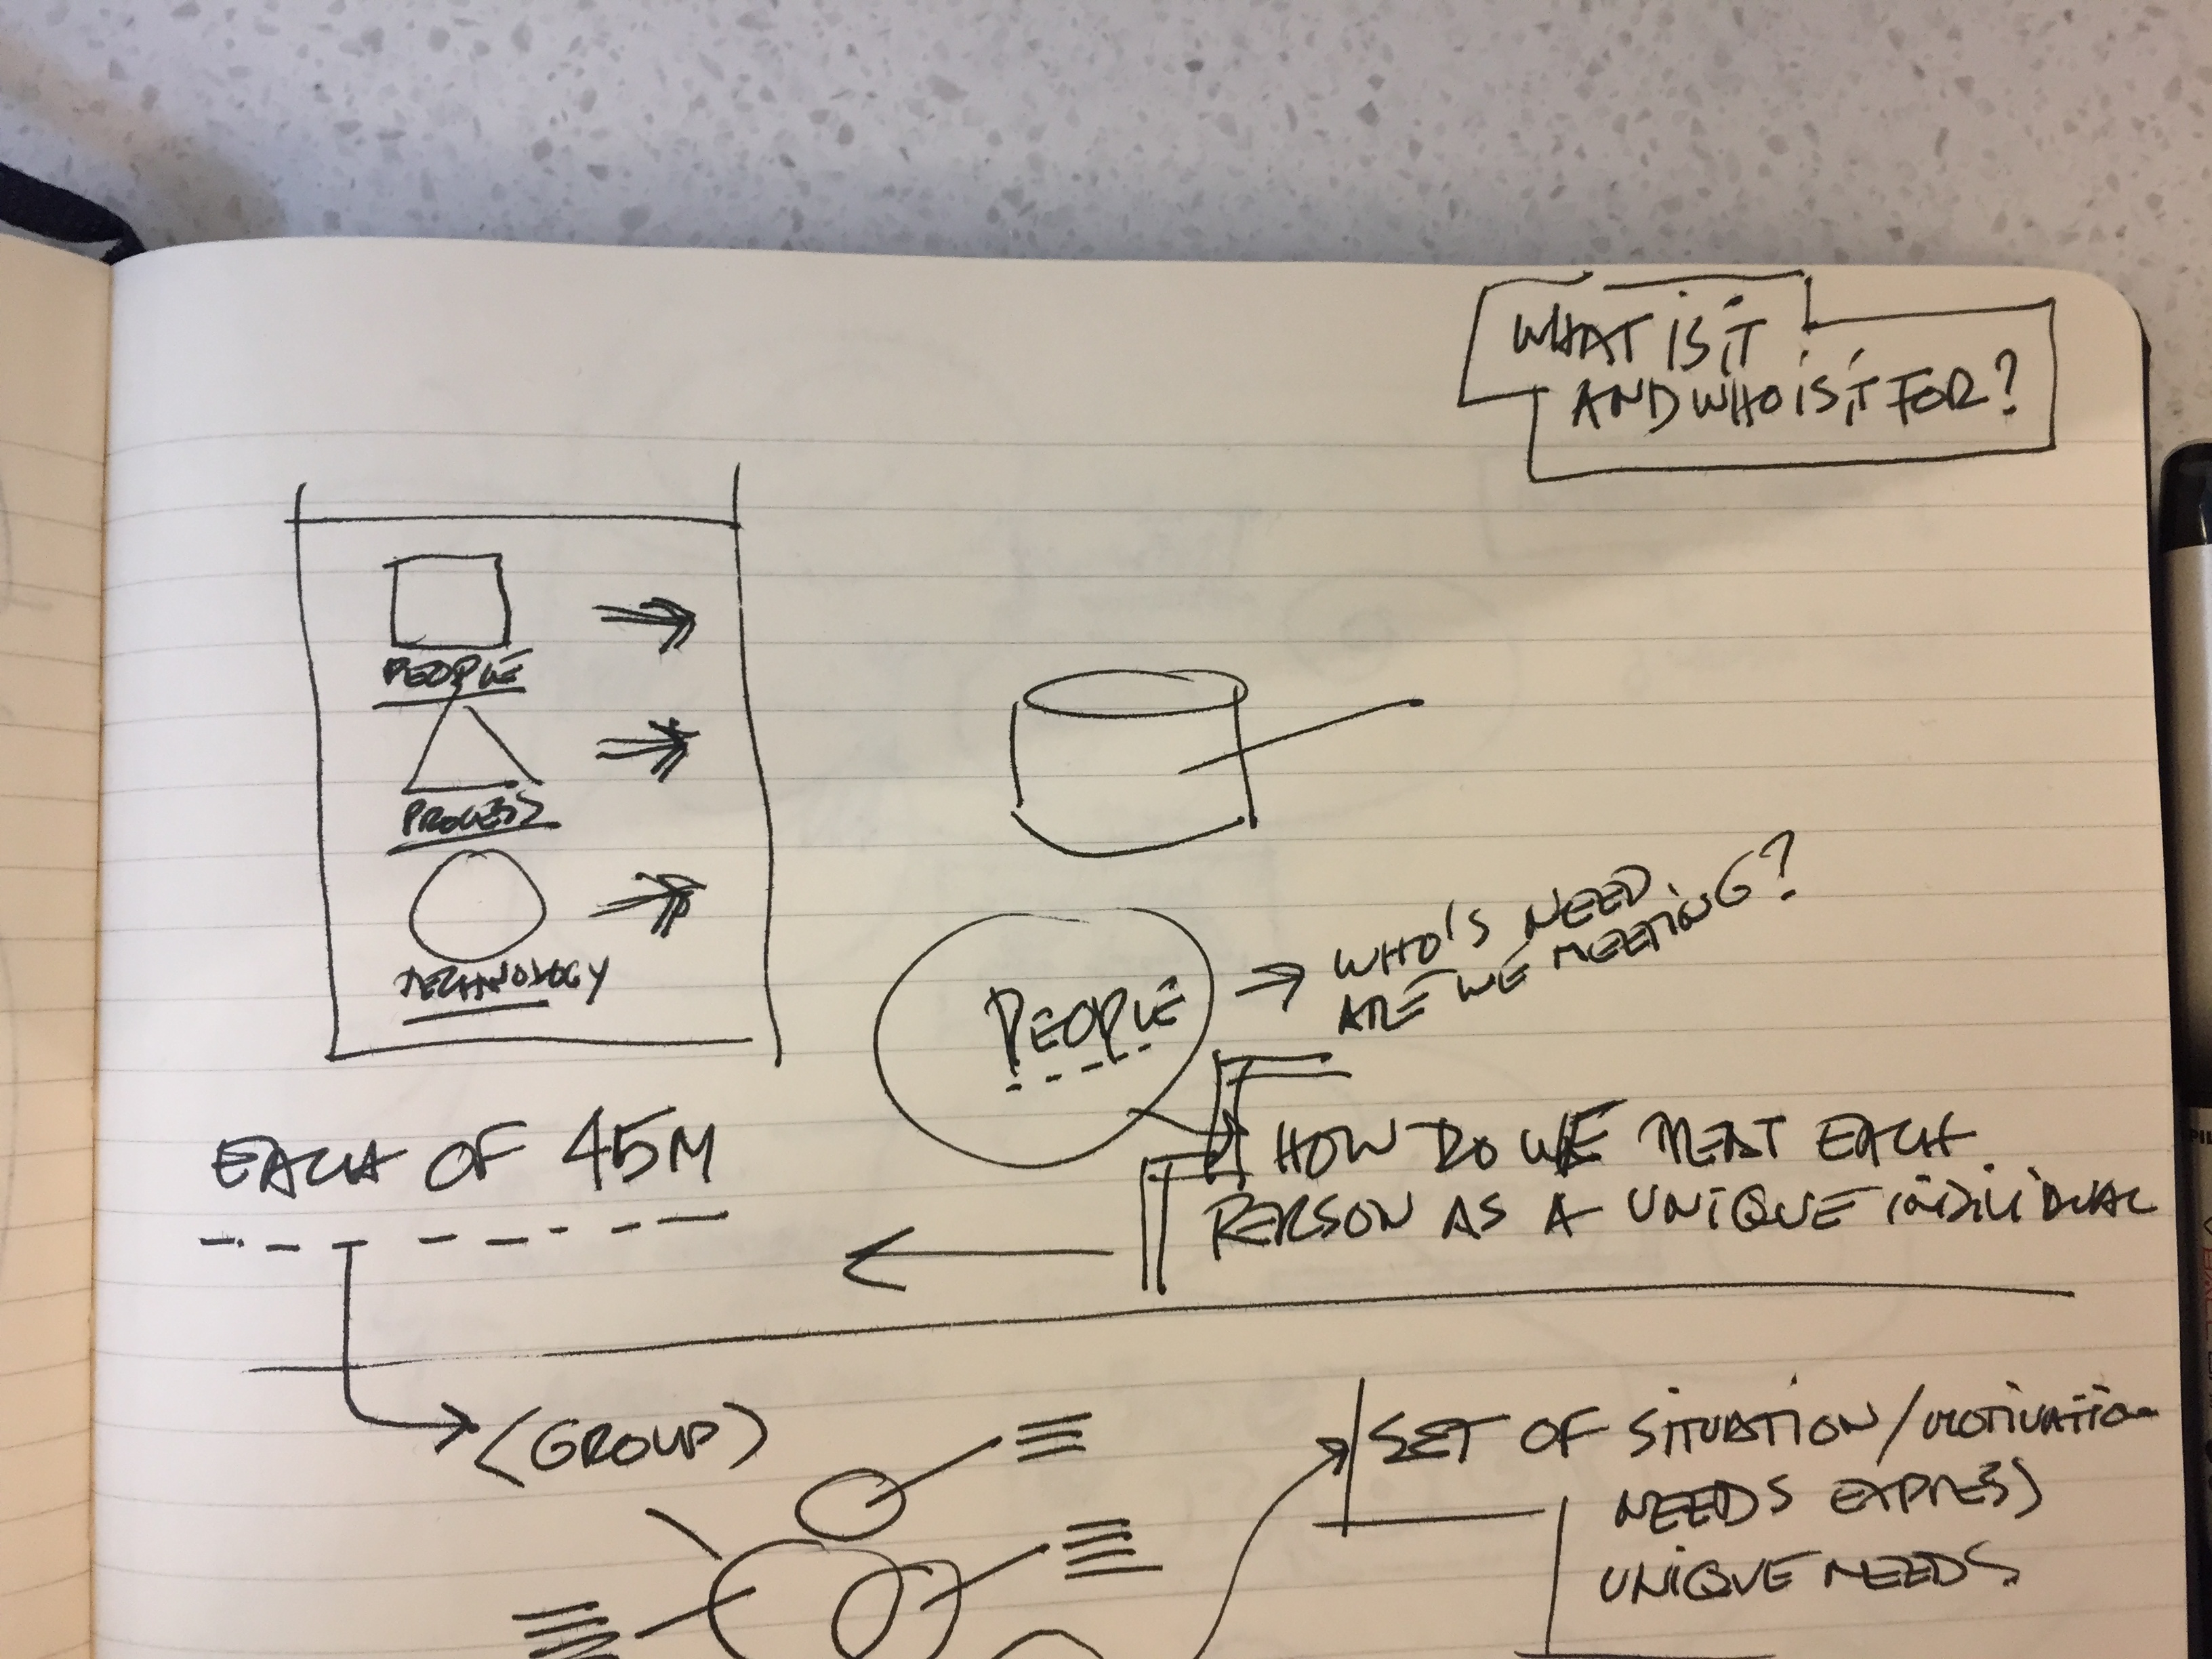 WHAT IS iT
AND WHO iS iT FOR?
PEOPLE
PROCESS
TECHNOLOGY
EACH OF 45M
PEOPLE
WHO'S NEED
ARE WE MEETiNG?
HOW DO WE MEET EACH
PERSON AS A UNiQUE iNDiViDUAL
(GROUP)
SET OF SiTUATiON/MOTiVATiON
NEEDS EXPRES)
UNiQUE NEEDS.